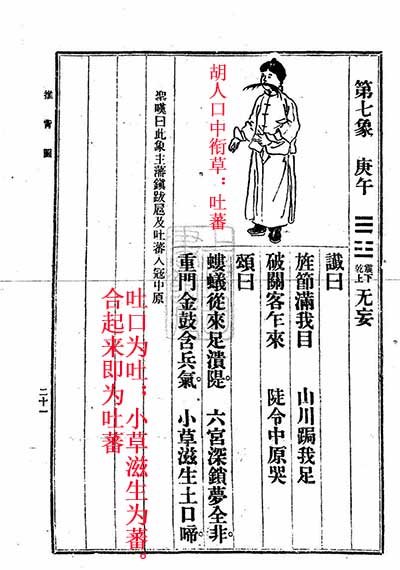 第七象 庚午 ䷘ 震下乾上 无妄
讖曰
旌節滿我目 山川跼我足
破關客乍來 陡令中原哭
頌曰
螻蟻從來足潰隄。 六宮深鎖夢全非。
重門金鼓含兵氣。 小草滋生土口啼。
胡人口中衔草：吐蕃
聖嘆曰此象主藩鎭跋扈及吐蕃入寇中原
吐口为吐；小草滋生为蕃。
合起来即为吐蕃
推背圖
二十一